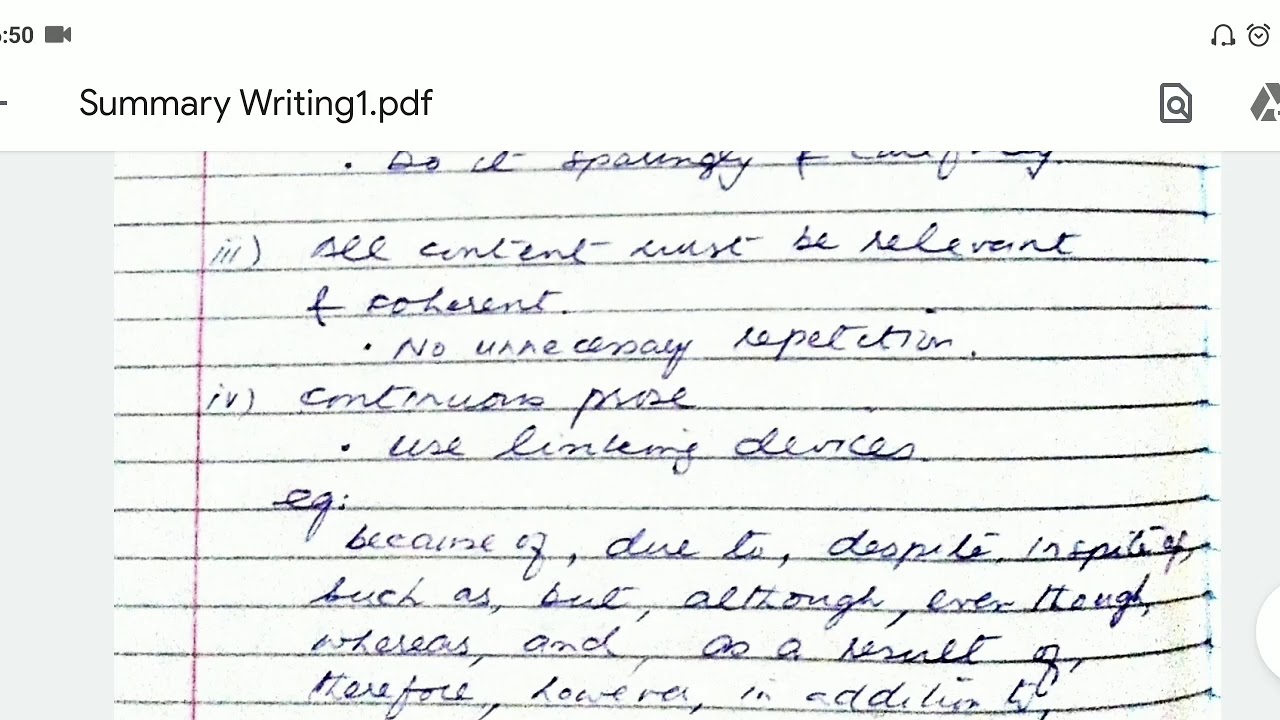 :50
Summary Writing1.pdf
• Do it sparingly & carefully.
iii) All content must be relevant
& coherent.
• No unnecessary repetition.
iv) continuous prose
• use linking devices.
eg:
because of, due to, despite, inspite of,
such as, but, although, even though,
whereas, and, as a result of,
therefore, however, in addition to,